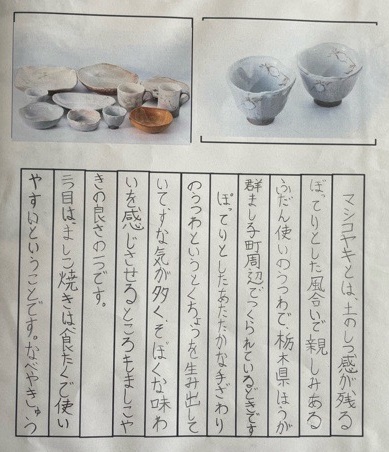 マシコヤキとは、土のしつ感が残る
ぼってりとした風合いで親しみある
ふだん使いのうつわで、栃木県はうが
群ましき町周辺でつくられているどきです
ぽってりとしたあたたかな手ざわり
のうつわというとくちょうを生み出して
いて、すな気が多く、そぼくな味わ
いを感じさせるところもましこや
きの良さの一つです。
二つ目は、ましこ焼きは食たくで使い
やすいということです。なべやきゅう